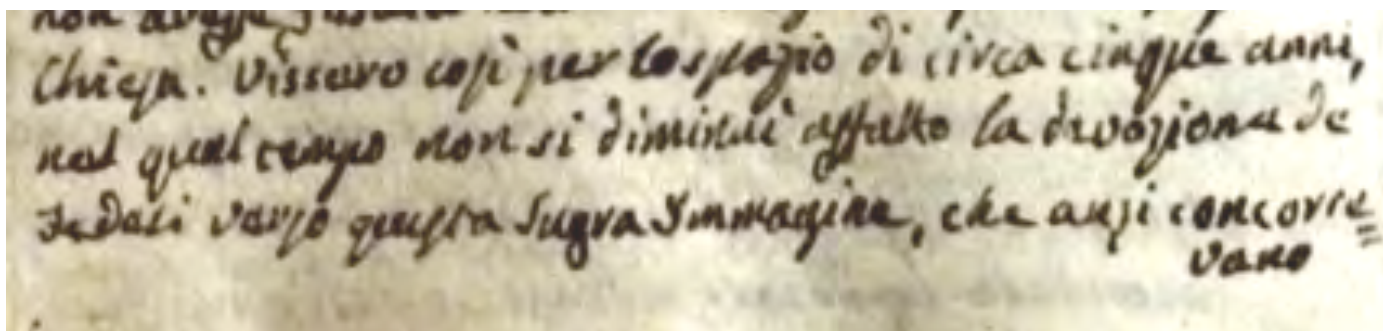 non avesse
Chiesa. Vissero così per lo spazio di circa cinque anni,
nel qual tempo non si diminuì affatto la devozione de
Fedeli verso questa Sagra Immagine, che anzi concorre=
vano